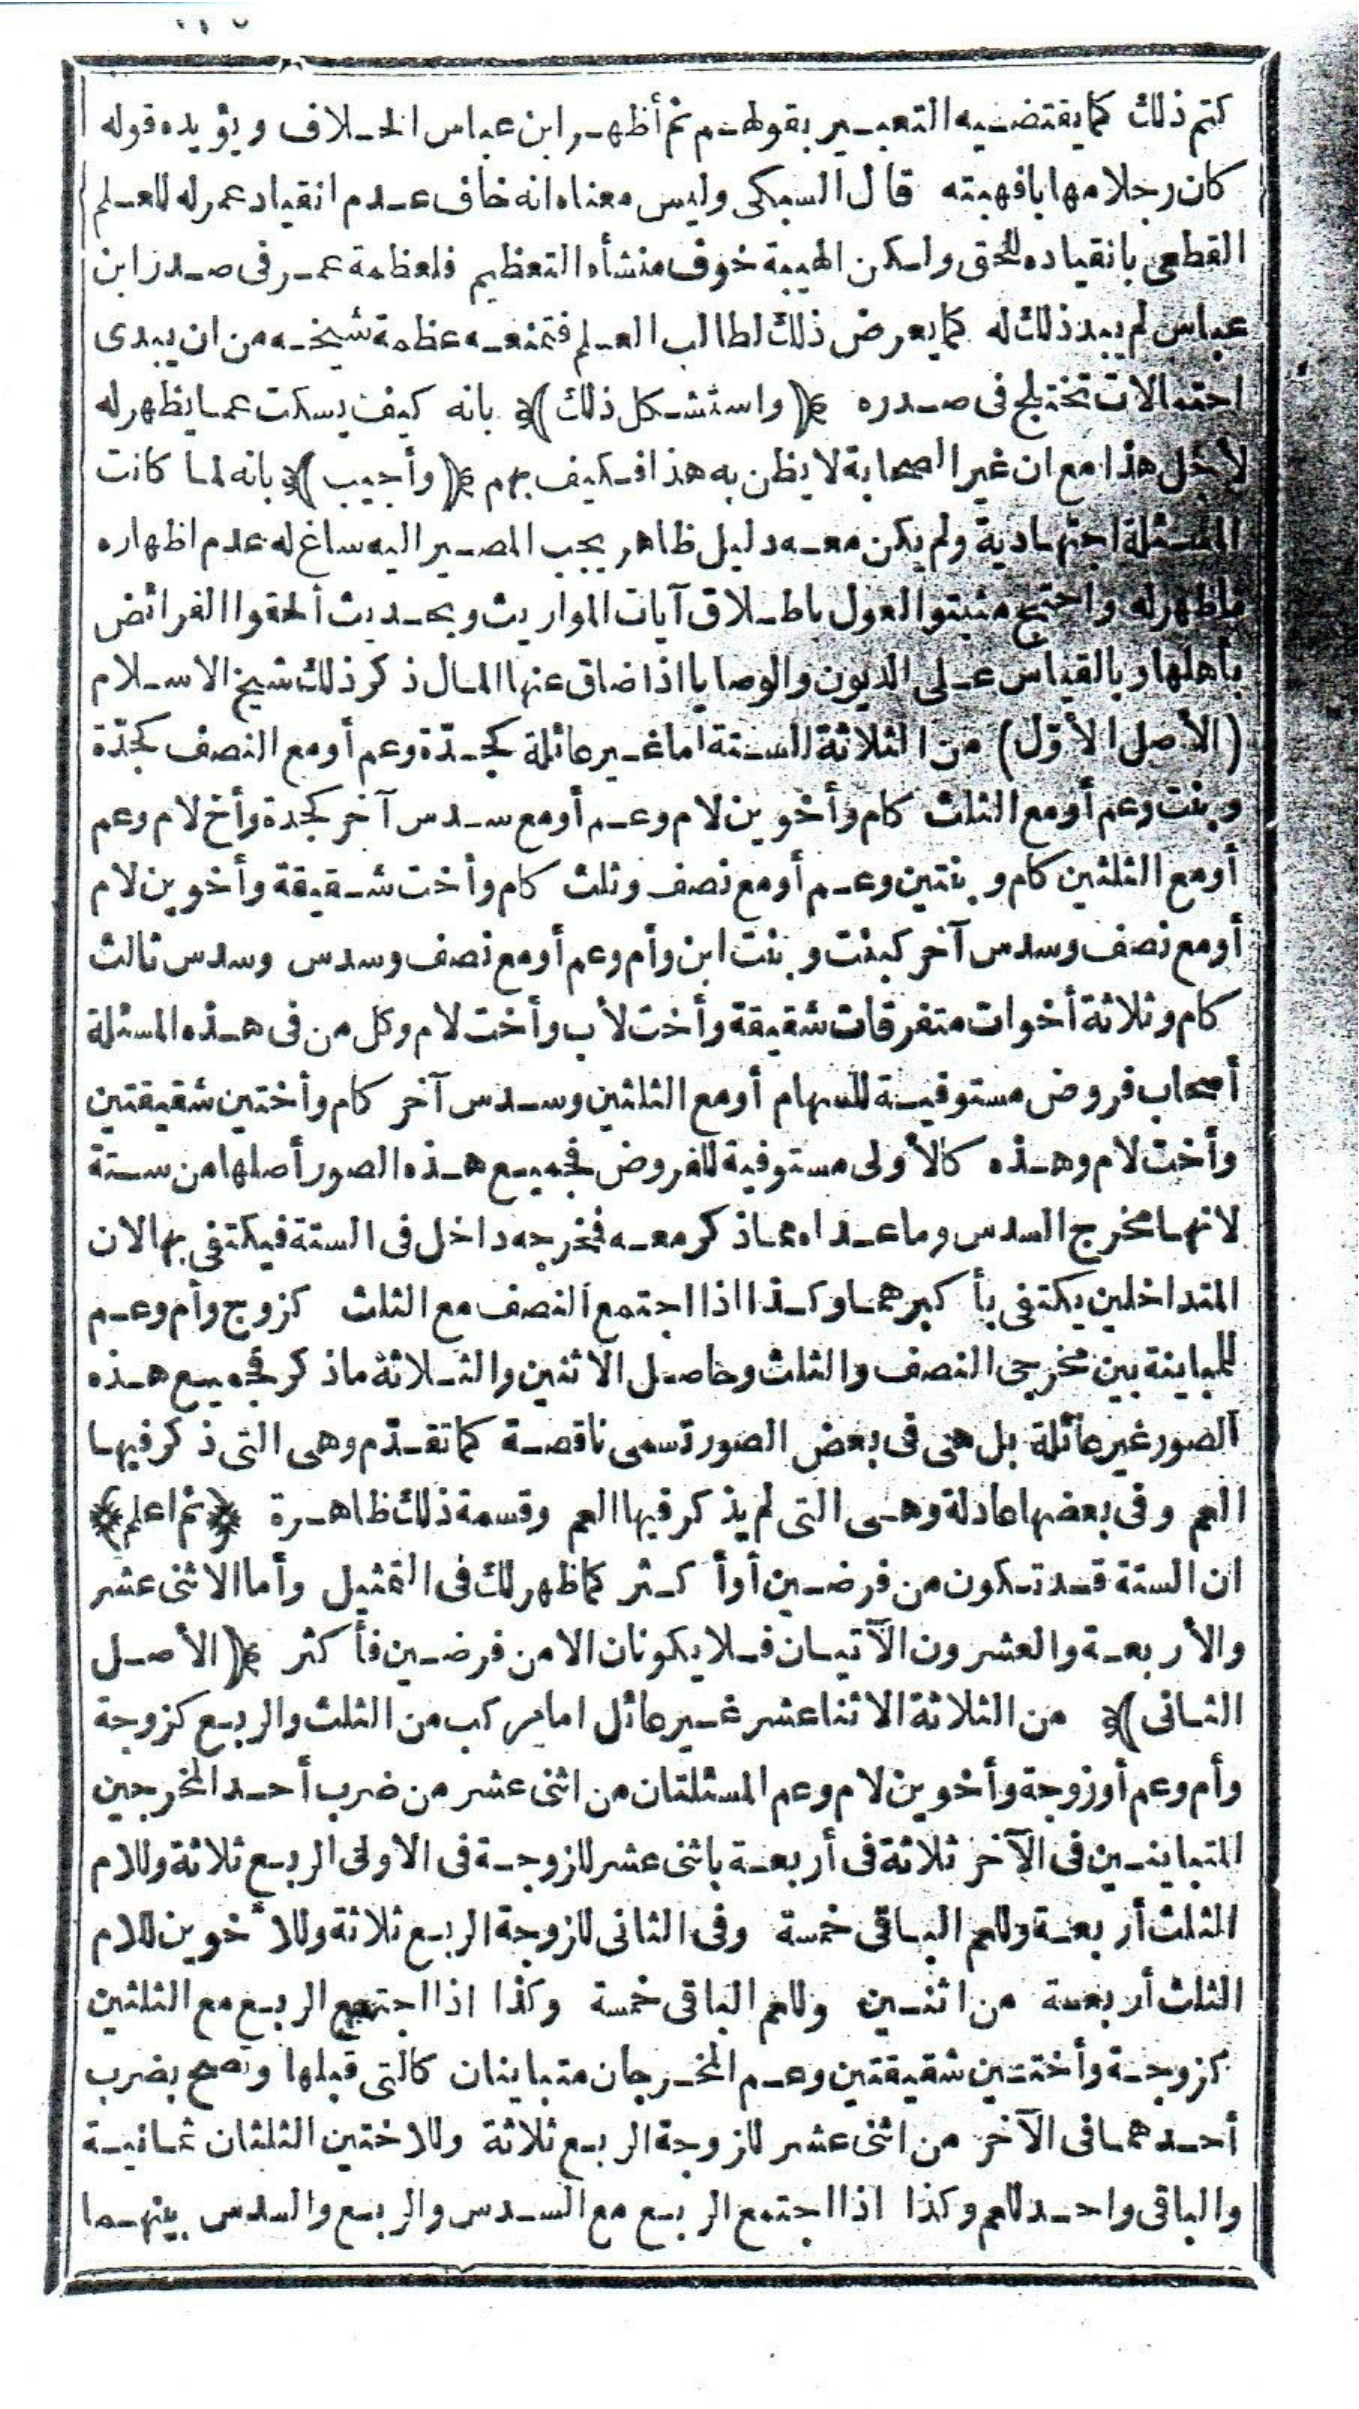 كتم ذلك كما يقتضيه التعبير بقولهم ثم أظهر ابن عباس الخلاف ويؤيده قوله
كان رجلا مهابا فهبته قال السبكى وليس معناه انه خاف عدم انقياد عمر له للعلم
القطعى بانقياده للحق ولكن الهيبة خوف منشأه التعظيم فلعظمة عمر فى صدر ابن
عباس لم يبد ذلك له كما يعرض ذلك لطالب العلم فتمنعه عظمة شيخه من ان يبدى
احتمالات تختلج فى صدره ﴿واستشكل ذلك﴾ بانه كيف يسكت عما يظهر له
لأجل هذا مع ان غير الصحابة لا يظن به هذا فكيف بهم ﴿وأجيب﴾ بانه لما كانت
المسئلة اجتهادية ولم يكن معه دليل ظاهر يجب المصير اليه ساغ له عدم اظهاره
ماظهر له واحتج مثبتوا العول باطلاق آيات المواريث وبحديث ألحقوا الفرائض
بأهلها وبالقياس على الديون والوصايا اذا ضاق عنها المال ذكر ذلك شيخ الاسلام
(الأصل الأوّل) من الثلاثة الستة اما غير عائلة كجدّة وعم أو مع النصف كجدّة
وبنت وعم أو مع الثلث كام وأخوين لام وعم أو مع سدس آخر كجدة وأخ لام وعم
أو مع الثلثين كام وبنتين وعم أو مع نصف وثلث كام وأخت شقيقة وأخوين لام
أو مع نصف وسدس آخر كبنت وبنت ابن وأم وعم أو مع نصف وسدس وسدس ثالث
كام وثلاثة أخوات متفرقات شقيقة وأخت لأب وأخت لام وكل من فى هذه المسئلة
أصحاب فروض مستوفية للسهام أو مع الثلثين وسدس آخر كام وأختين شقيقتين
وأخت لام وهذه كالأولى مستوفية للفروض فجميع هذه الصور أصلها من ستة
لانها مخرج السدس وما عداه مما ذكر معه فمخرجه داخل فى الستة فيكتفى بها لان
المتداخلين يكتفى بأكبرهما وكذا اذا اجتمع النصف مع الثلث كزوج وأم وعم
للمباينة بين مخرجى النصف والثلث وحاصل الاثنين والثلاثة ماذكر فجميع هذه
الصور غير عائلة بل هى فى بعض الصور تسمى ناقصة كما تقدّم وهى التى ذكر فيها
العم وفى بعضها عادلة وهى التى لم يذكر فيها العم وقسمة ذلك ظاهرة ﴿ثم اعلم﴾
ان الستة قد تكون من فرضين أو أكثر كما ظهر لك فى التمثيل وأما الاثنى عشر
والأربعة والعشرون الآتيان فلا يكونان الا من فرضين فأكثر ﴿الأصل
الثانى﴾ من الثلاثة الاثنا عشر غير عائل اما مركب من الثلث والربع كزوجة
وأم وعم أو زوجة وأخوين لام وعم المسئلتان من اثنى عشر من ضرب أحد المخرجين
المتباينين فى الآخر ثلاثة فى أربعة باثنى عشر للزوجة فى الاولى الربع ثلاثة وللام
الثلث أربعة وللعم الباقى خمسة وفى الثانى للزوجة الربع ثلاثة وللأخوين للام
الثلث أربعة من اثنين وللعم الباقى خمسة وكذا اذا اجتمع الربع مع الثلثين
كزوجة وأختين شقيقتين وعم المخرجان متباينان كالتى قبلها وتصح بضرب
أحدهما فى الآخر من اثنى عشر للزوجة الربع ثلاثة وللاختين الثلثان ثمانية
والباقى واحد للعم وكذا اذا اجتمع الربع مع السدس والربع والسدس بينهما